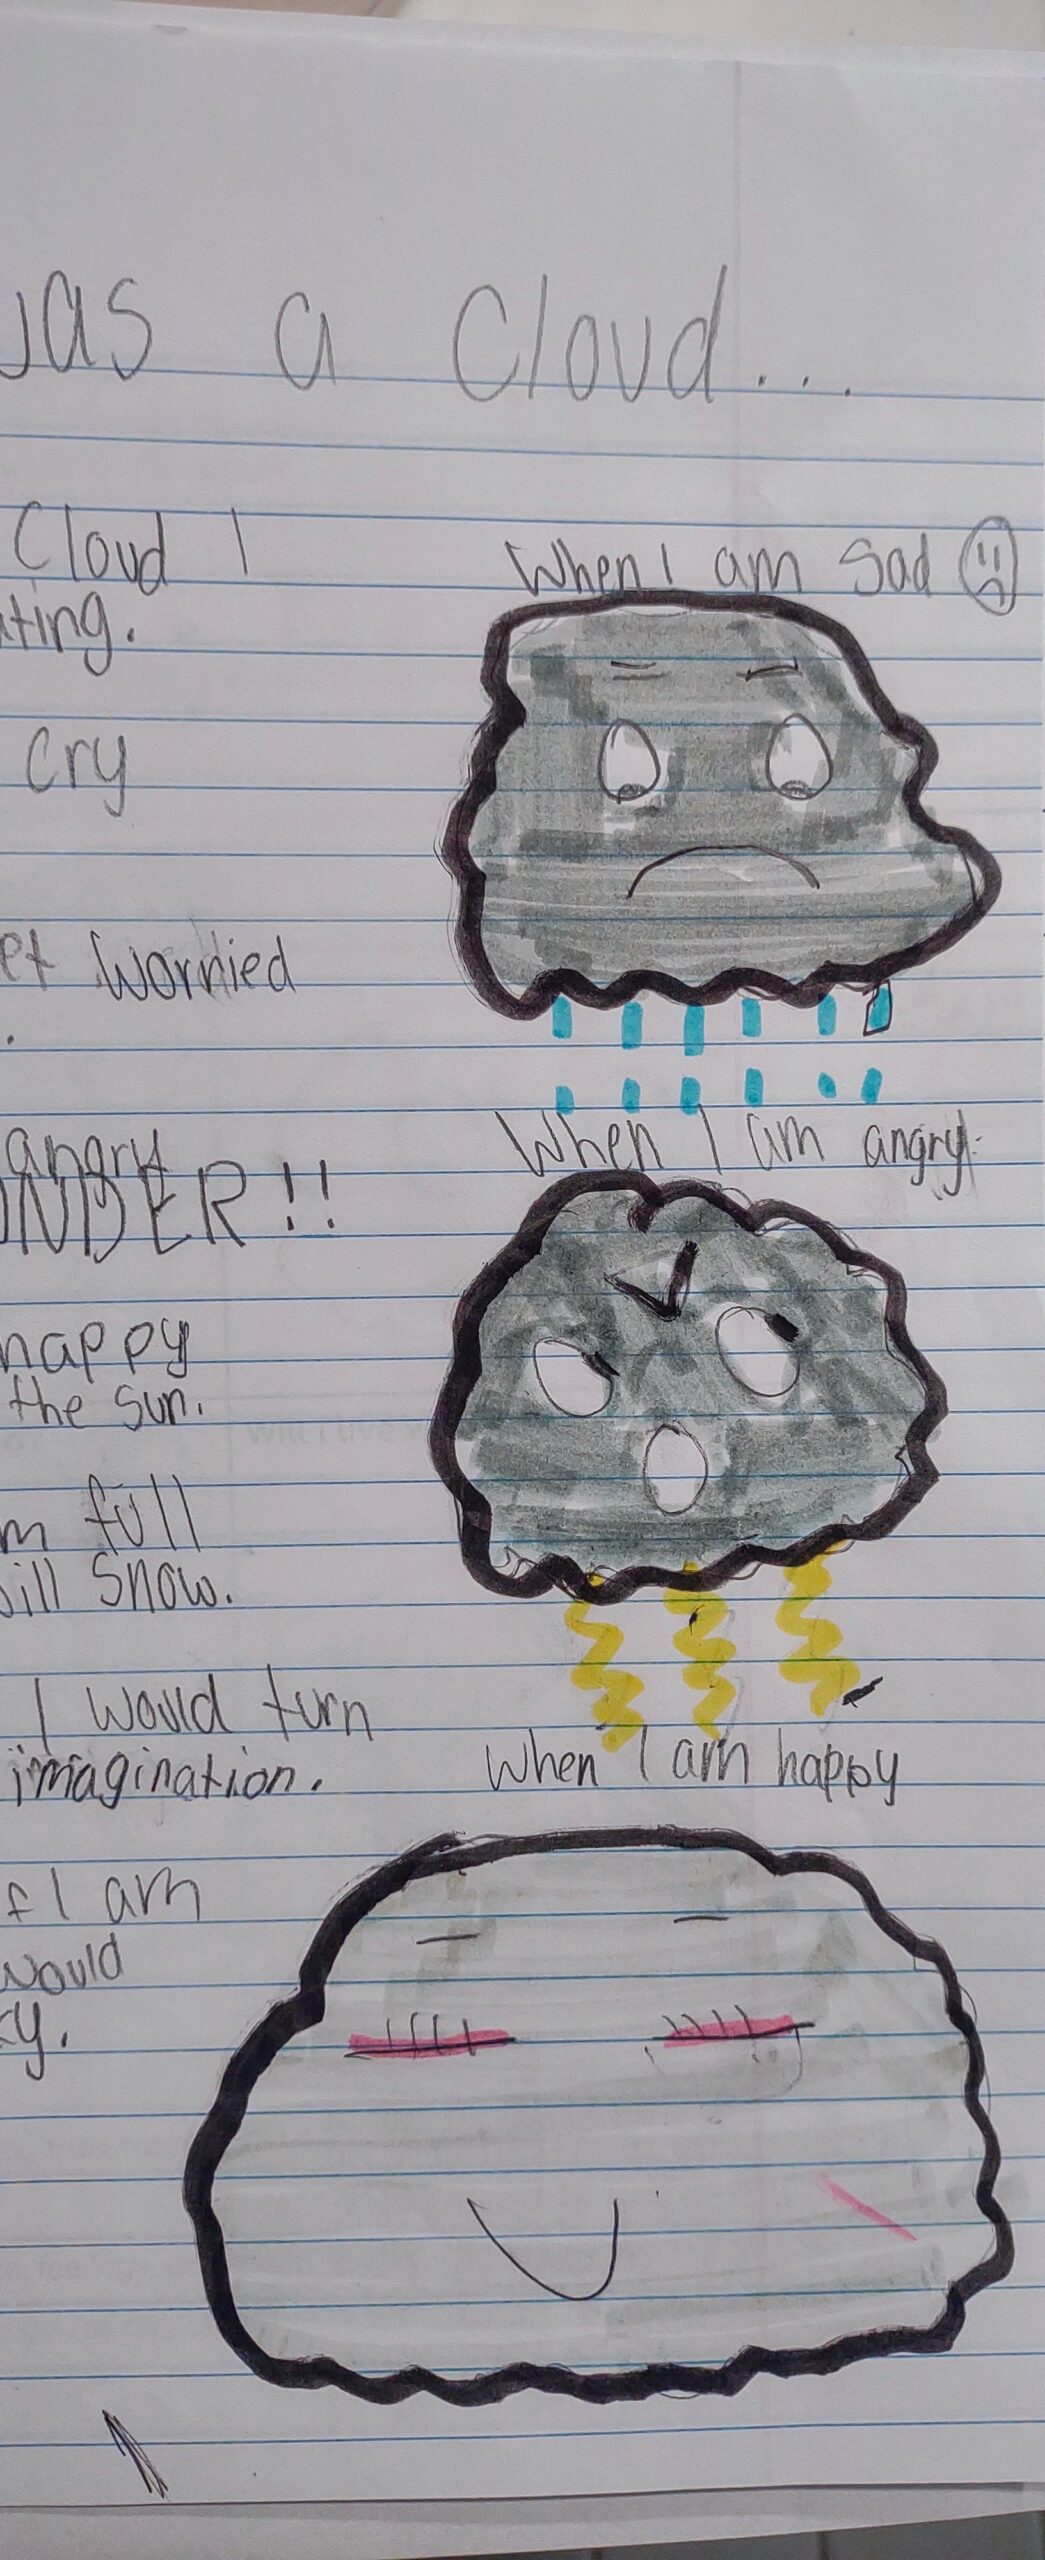 was a Cloud...
Cloud I
ating.
cry
et Worried
.
angry
UNDER!!
happy
the sun.
m full
will Snow.
I would turn
imagination.
f I am
would
ky.
When I am Sad
When I am angry.
When I am happy